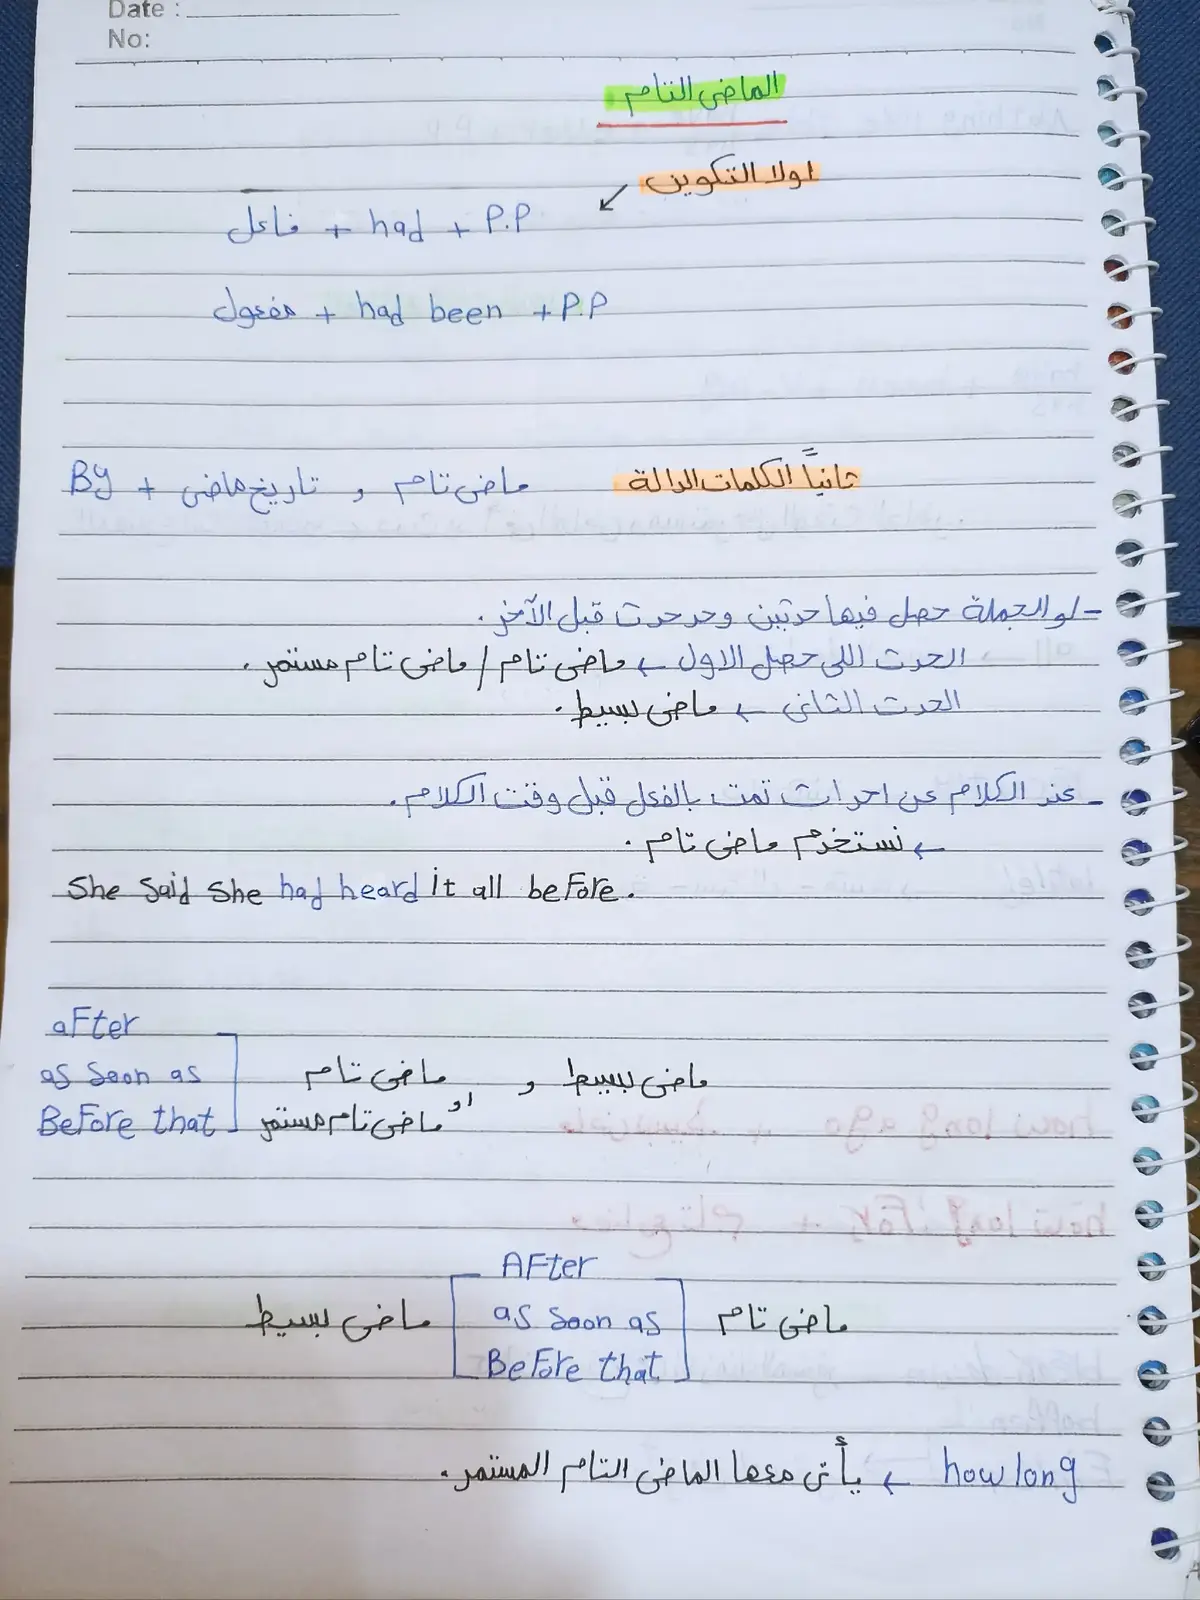 Date :
No:
الماضى التام
اولا التكوين
فاعل + had + P.P
مفعول + had been + P.P
ثانياً الكلمات الدالة
By + تاريخ ماضى و ماضى تام
- لو الجملة حصل فيها حدثين وحد حدث قبل الآخر.
الحدث اللى حصل الاول ← ماضى تام / ماضى تام مستمر.
الحدث الثانى ← ماضى بسيط.
- عند الكلام عن احداث تمت بالفعل قبل وقت الكلام.
← نستخدم ماضى تام.
She Said She had heard it all before.
after
as soon as
Before that
ماضى تام
او ماضى تام مستمر
و ماضى بسيط
ماضى بسيط
After
as soon as
Before that
ماضى تام
how long ← يأتى معها الماضى التام المستمر.